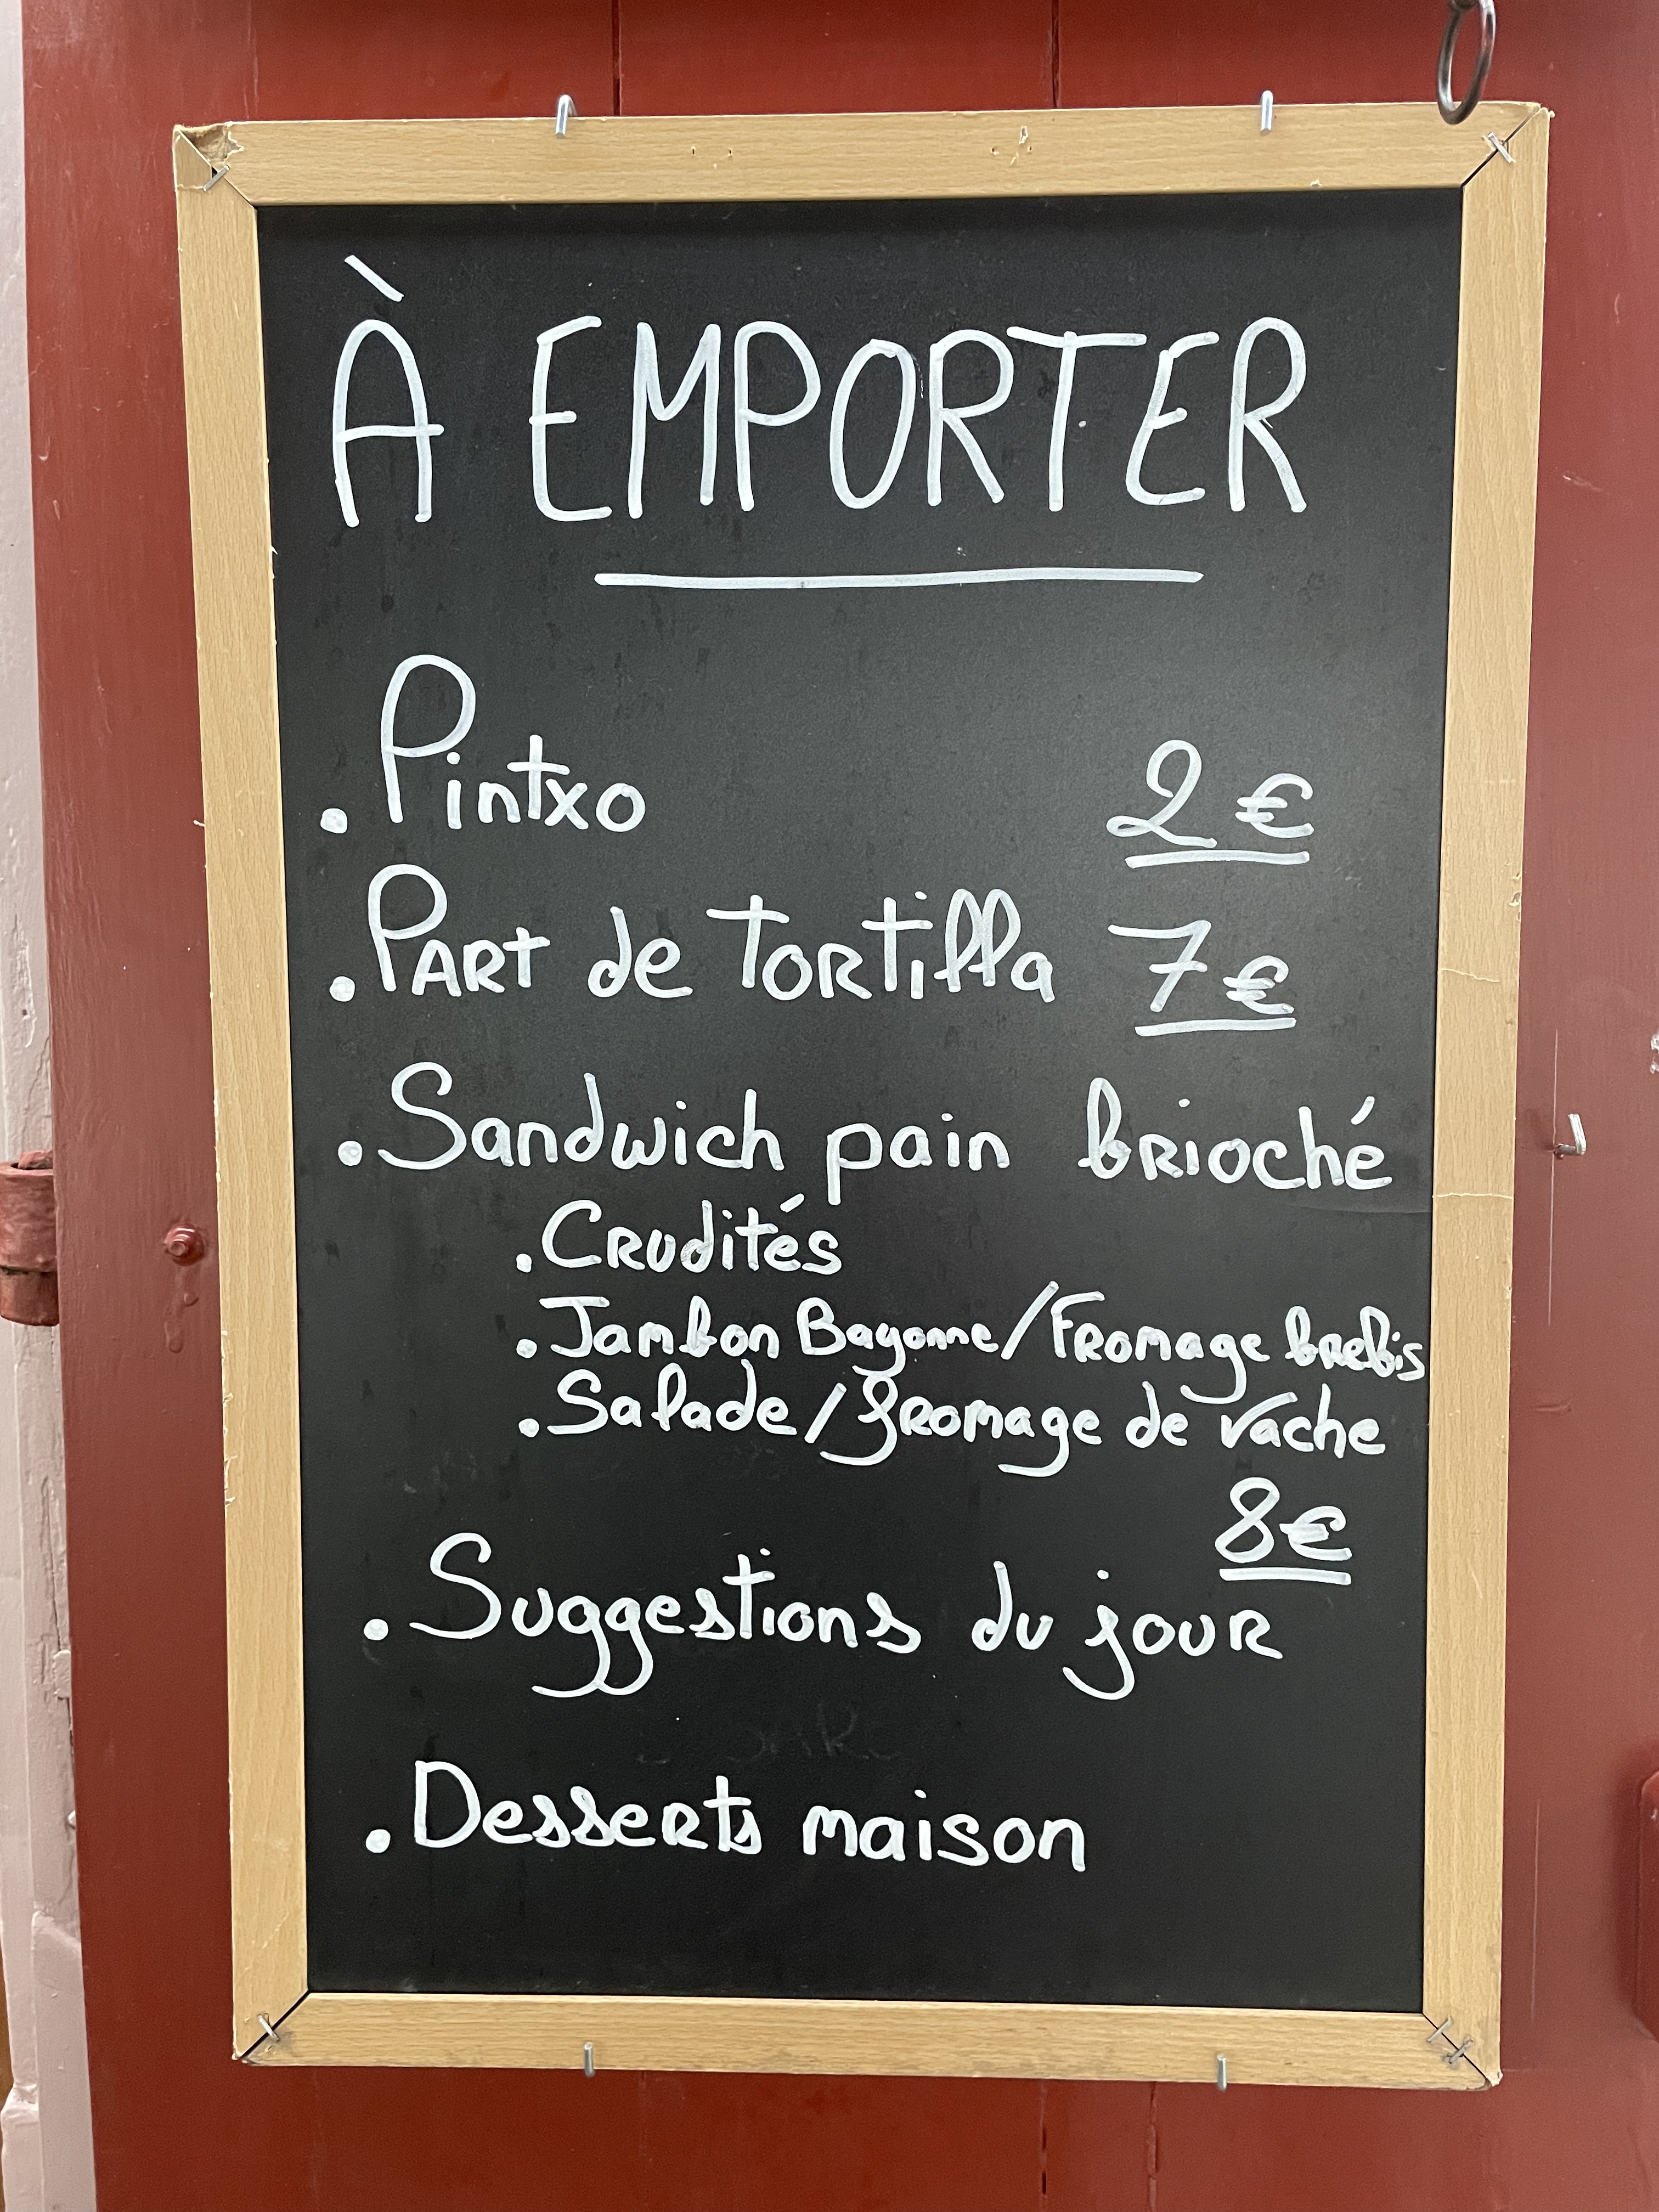 À EMPORTER
. Pintxo 2 €
. PART de TORTilla 7 €
. Sandwich pain brioché
. Crudités
. Jambon Bayonne/Fromage brebis
. Salade/fromage de vache
8€
. Suggestions du jour
. Desserts maison